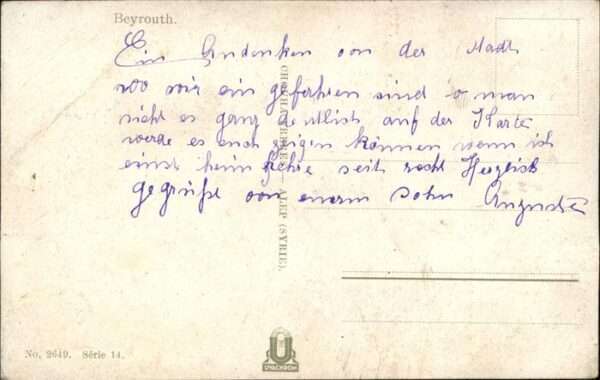 Beyrouth.
Ein Andenken von der Stadt
wo wir ein gefahren sind o man
sieht es ganz deutlich auf der Karte
werde es euch zeigen können wenn ich
einst heim kehre seit recht Herzlich
gegrüßt von eurem Sohn
ALEP (SYRIE).
No. 2649. Série 14.
U
UVACHROM